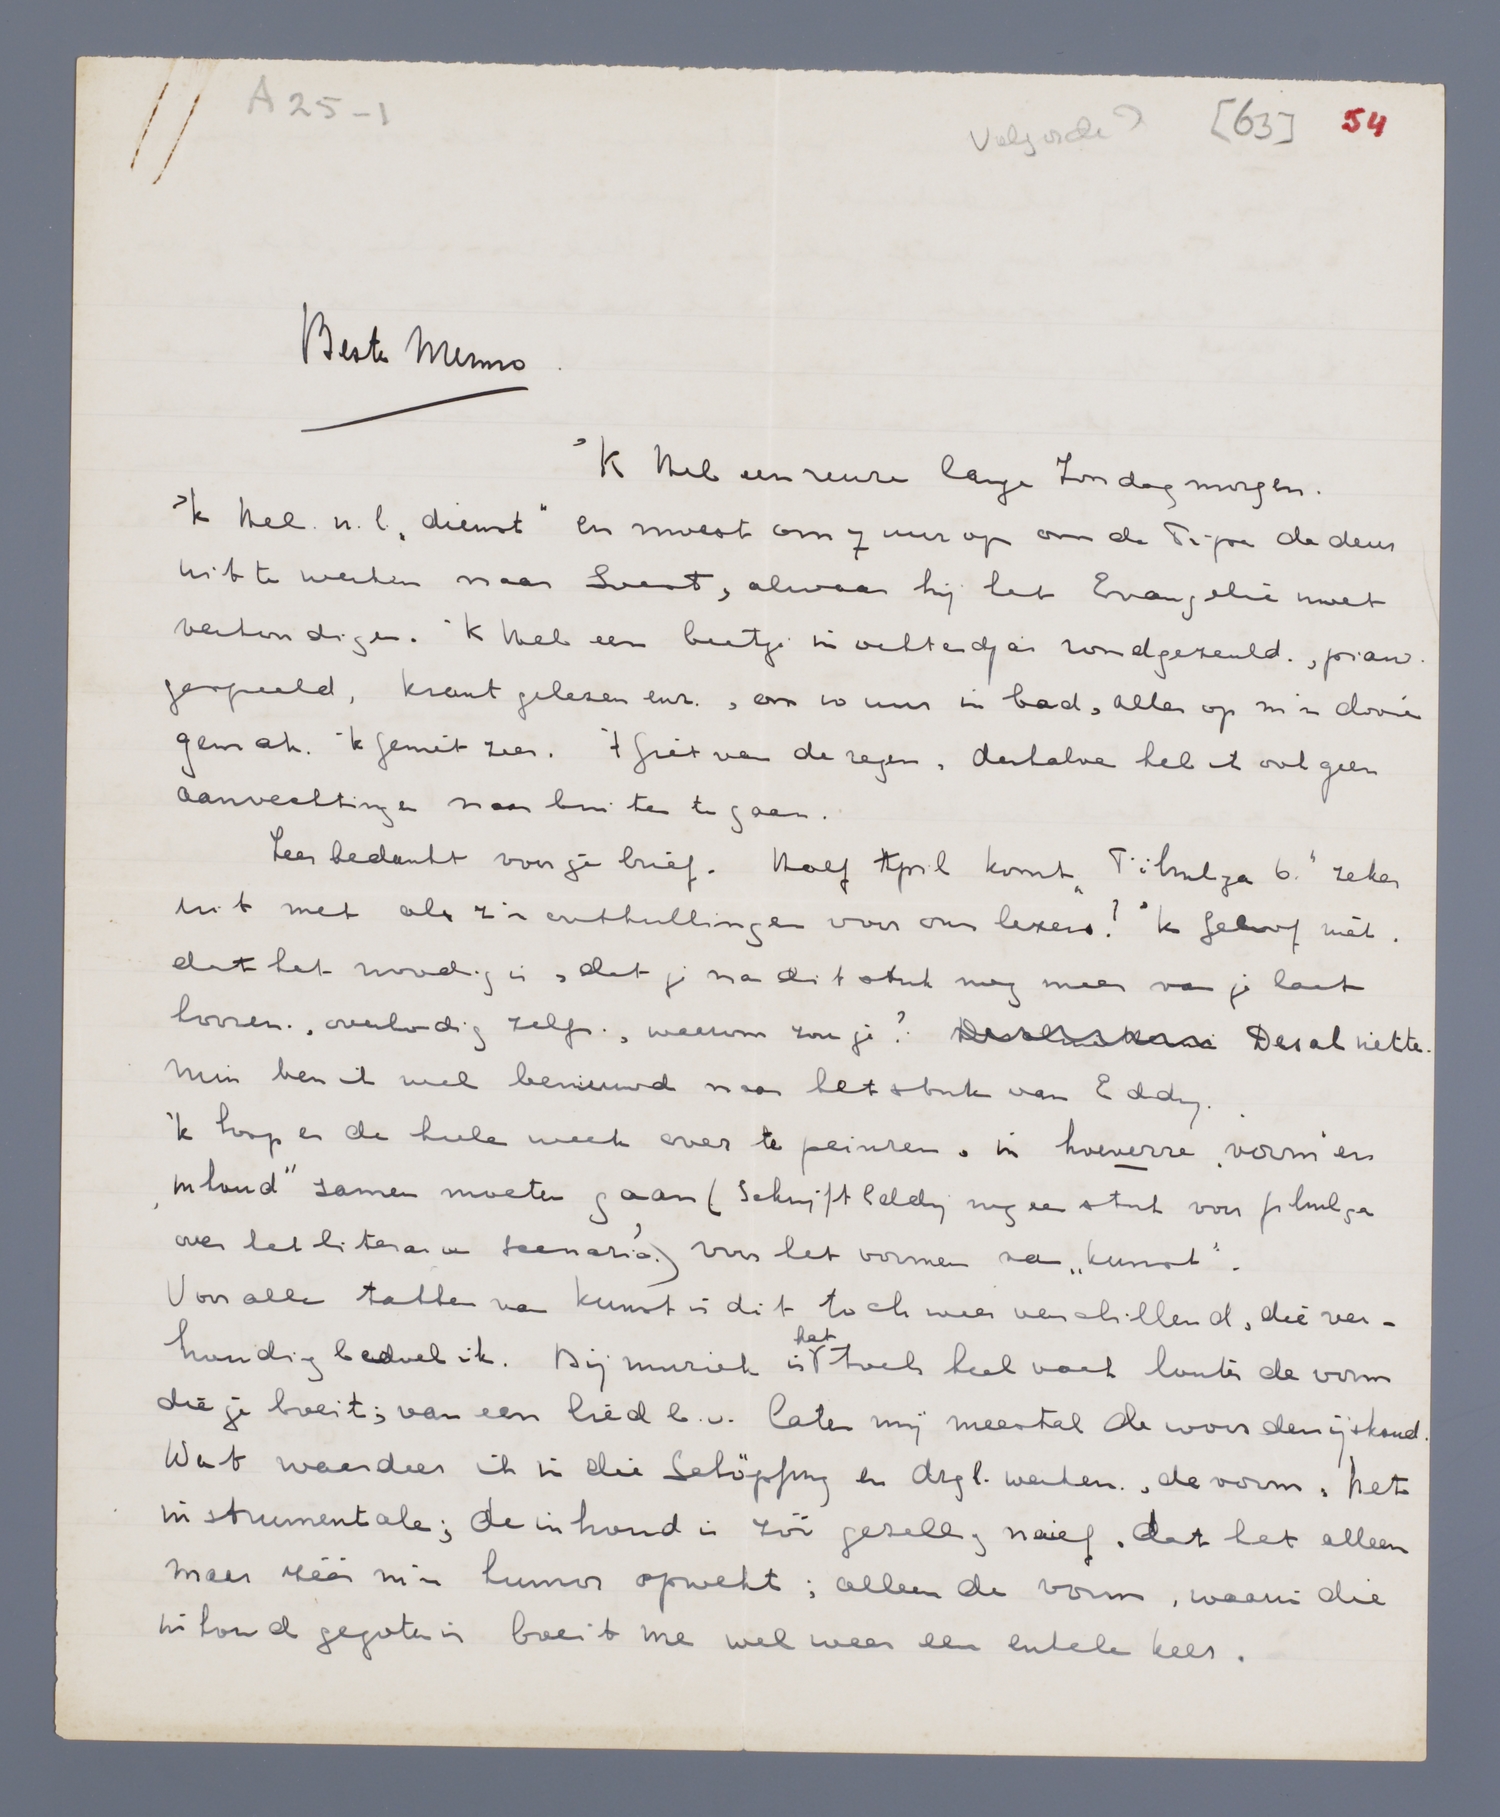 A 25-1
Volgorde? [63] 54
Beste Menno.
'k Heb een reuze lange Zondagmorgen.
'k Heb n.l. „dienst" en moest om 7 uur op om de Tijpe de deur
uit te werken naar Soest, alwaar hij het Evangelie moet
verkondigen. 'k Heb een beetje in ochtendjas rondgezeuld, piano
gespeeld, krant gelezen enz., om 10 uur in bad, alles op m'n dooie
gemak. 'k geniet zeer. 't giet van de regen, derhalve heb ik ook geen
aanvechtingen naar buiten te gaan.
Zeer bedankt voor je brief. Half April komt „Filmliga 6." zeker
uit met al z'n onthullingen voor onze lezers! 'k Geloof niet,
dat het noodig is, dat je na dit stuk nog meer van je laat
hooren, overbodig zelfs, waarom zou je? Desalniette-
min ben ik wel benieuwd naar het stuk van Eddy.
'k loop er de heele week over te peinzen, in hoeverre „vorm en
inhoud" samen moeten gaan (Schrijft Eddy nog een stuk voor filmliga
over het literaire scenario?) voor het vormen van „kunst".
Voor alle takken van kunst is dit toch weer verschillend, die ver-
houding bedoel ik. Bij muziek is het toch heel vaak louter de vorm
die je boeit; van een lied b.v. laten mij meestal de woorden ijskoud.
Wat waardeer ik in die Schöpfung en drgl. werken, de vorm, het
instrumentale; de inhoud is zóó gezellig naief, dat het alleen
maar zéér m'n humor opwekt; alleen de vorm, waarin die
inhoud gegoten is boeit me wel weer een enkele keer.